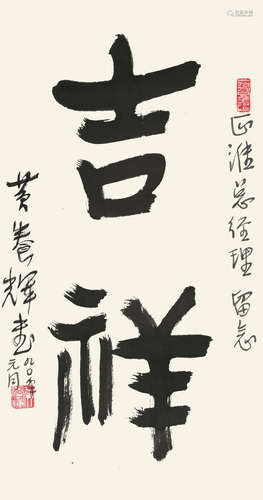 正淮总经理留念
吉祥
黄养辉书
九〇年
元月